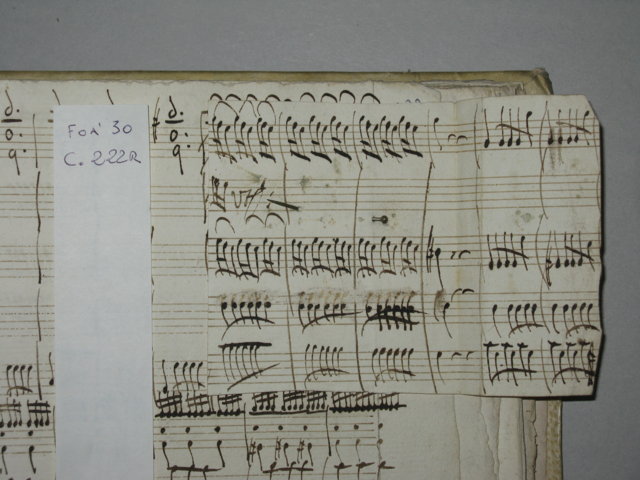 Foà 30
C. 222R